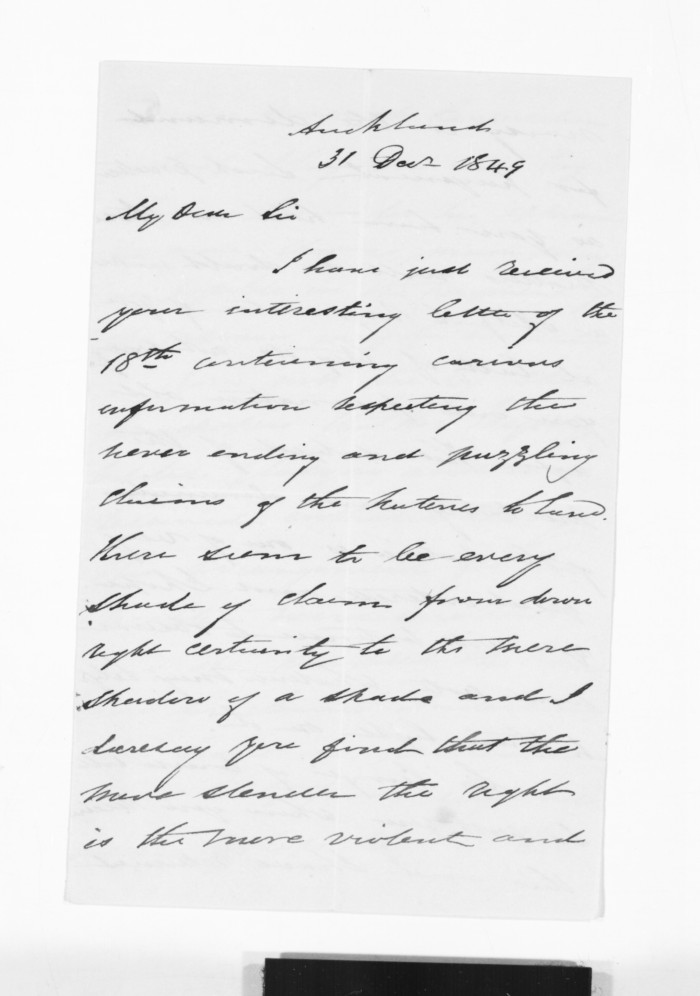 Auckland
31 Decr 1849
My Dear Sir
I have just received
your interesting letter of the
18th containing curious
information respecting the
never ending and puzzling
claims of the natives to land.
There seem to be every
shade of claim from down
right certainity to the mere
shadow of a shade and I
daresay you find that the
more slender the right
is the more violent and